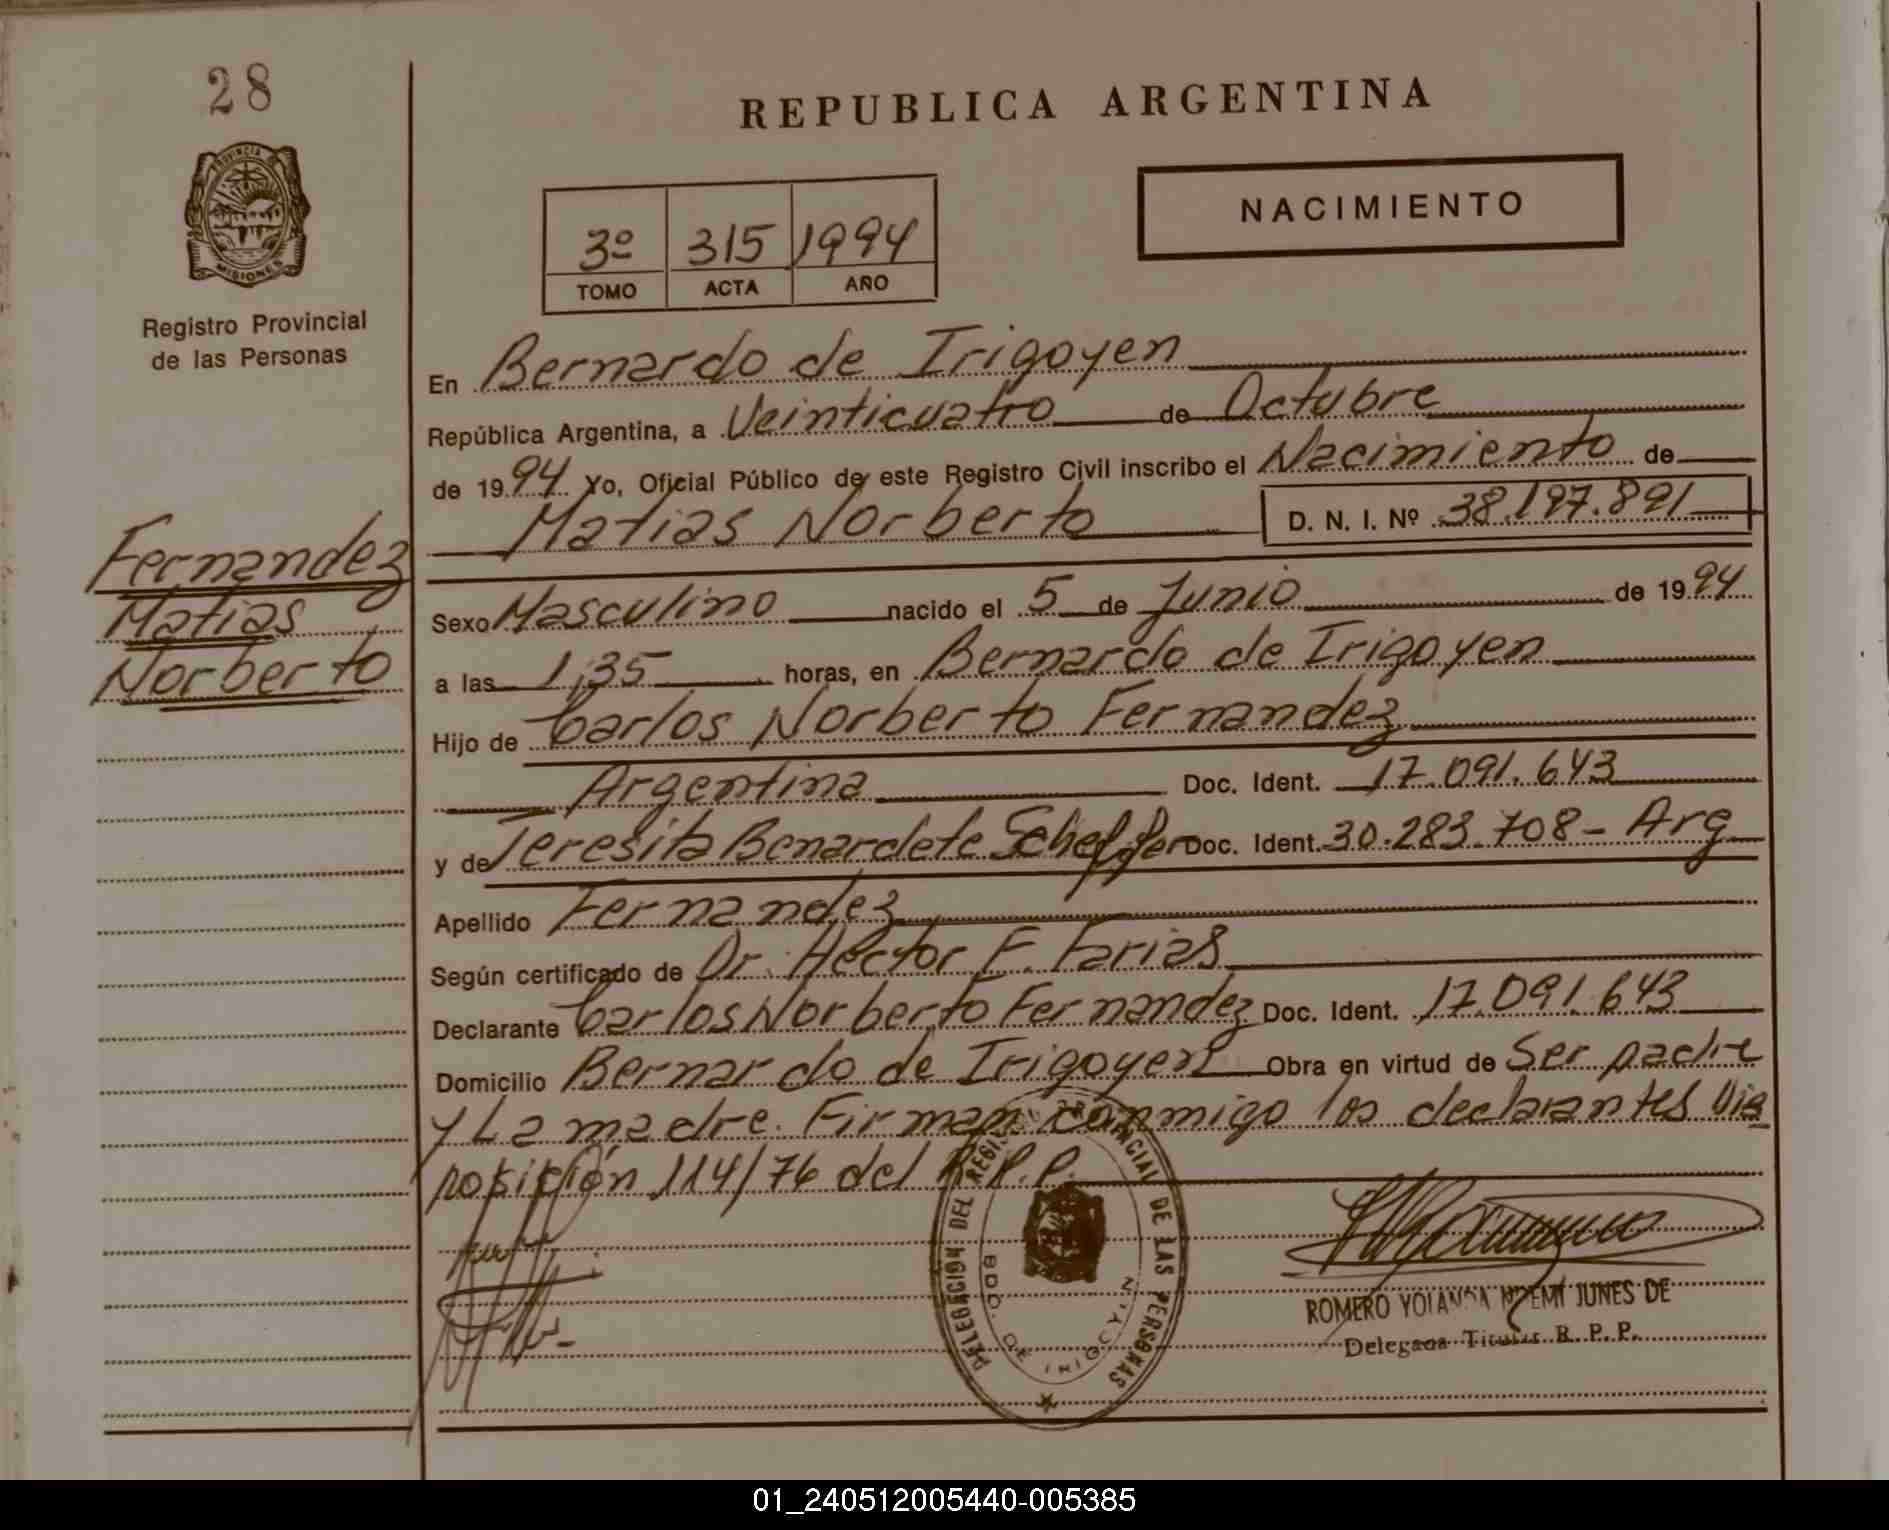 28
REPUBLICA ARGENTINA
PROVINCIA DE
MISIONES
Registro Provincial
de las Personas
NACIMIENTO
3º 315 1994
TOMO ACTA AÑO
En Bernardo de Irigoyen
República Argentina, a Veinticuatro de Octubre
de 1994 Yo, Oficial Público de este Registro Civil inscribo el Nacimiento de
Matias Norberto D. N. I. Nº 38.197.891
Fernandez
Matias
Norberto
Sexo Masculino nacido el 5 de Junio de 1994
a las 1,35 horas, en Bernardo de Irigoyen
Hijo de Carlos Norberto Fernandez
Argentina Doc. Ident. 17.091.643
y de Teresita Benardete Scheffer Doc. Ident. 30.283.708 - Arg
Apellido Fernandez
Según certificado de Dr. Hector F. Farias
Declarante Carlos Norberto Fernandez Doc. Ident. 17.091.643
Domicilio Bernardo de Irigoyen Obra en virtud de Ser padre
y La madre. Firman conmigo los declarantes Dis
posición 114/76 del R.P.P.
DELEGACION DEL REGISTRO PROVINCIAL DE LAS PERSONAS
BDO. DE IRIGOYEN
ROMERO YOLANDA NOEMI JUNES DE
Delegada Titular R. P. P.
01_240512005440-005385